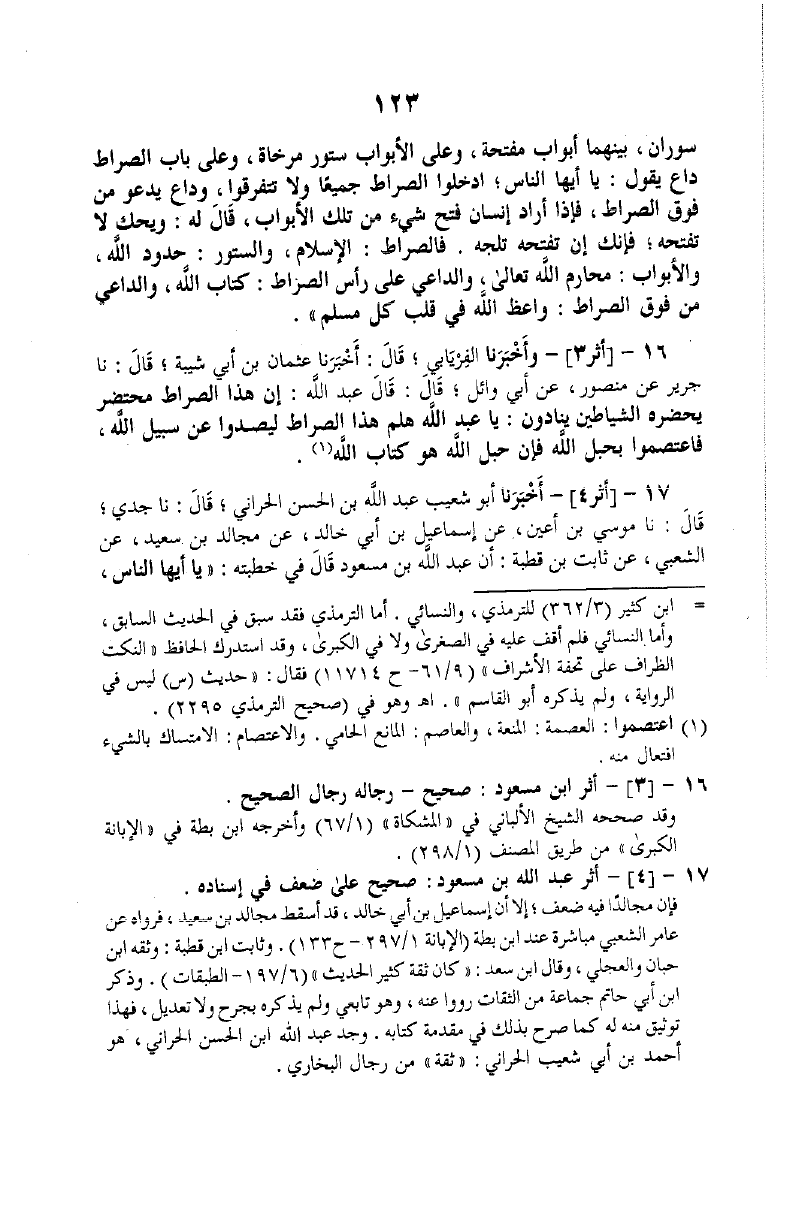 ١٢٣
سوران ، بينهما أبواب مفتحة ، وعلى الأبواب ستور مرخاة ، وعلى باب الصراط
داع يقول : يا أيها الناس؛ ادخلوا الصراط جميعًا ولا تتفرقوا ، وداع يدعو من
فوق الصراط ، فإذا أراد إنسان فتح شيء من تلك الأبواب ، قَالَ له : ويحك لا
تفتحه؛ فإنك إن تفتحه تلجه . فالصراط : الإسلام ، والستور : حدود اللَّه ،
والأبواب : محارم اللَّه تعالىٰ ، والداعي على رأس الصراط : كتاب اللَّه ، والداعي
من فوق الصراط : واعظ اللَّه في قلب كل مسلم» .
١٦ - [أثر٣] - وأَخْبَرَنا الفِرْيَابي ؛ قَالَ : أَخْبَرَنا عثمان بن أبي شيبة ؛ قَالَ : نا
جرير عن منصور ، عن أبي وائل ؛ قَالَ : قَالَ عبد اللَّه : إن هذا الصراط محتضر
يحضره الشياطين ينادون : يا عبد اللَّه هلم هذا الصراط ليصدوا عن سبيل اللَّه ،
فاعتصموا بحبل اللَّه فإن حبل اللَّه هو كتاب اللَّه(١) .
١٧ - [أثر٤] - أَخْبَرَنا أبو شعيب عبد اللَّه بن الحسن الحراني ؛ قَالَ : نا جدي ؛
قَالَ : نا موسي بن أعين ، عن إسماعيل بن أبي خالد ، عن مجالد بن سعيد ، عن
الشعبي ، عن ثابت بن قطبة : أن عبد اللَّه بن مسعود قَالَ في خطبته : « يا أيها الناس ،
= ابن كثير (٣٦٢/٣) للترمذي ، والنسائي . أما الترمذي فقد سبق في الحديث السابق ،
وأما النسائي فلم أقف عليه في الصغرىٰ ولا في الكبرىٰ ، وقد استدرك الحافظ « النكت
الظراف على تحفة الأشراف » (٦١/٩- ح ١١٧١٤) فقال : « حديث (س) ليس في
الرواية ، ولم يذكره أبو القاسم » . اهـ وهو في (صحيح الترمذي ٢٢٩٥) .
(١) اعتصموا : العصمة : المنعة ، والعاصم : المانع الحامي . والاعتصام : الامتساك بالشيء
افتعال منه .
١٦ - [٣] - أثر ابن مسعود : صحيح - رجاله رجال الصحيح .
وقد صححه الشيخ الألباني في « المشكاة » (٦٧/١) وأخرجه ابن بطة في « الإبانة
الكبرىٰ » من طريق المصنف (٢٩٨/١) .
١٧ - [٤] - أثر عبد الله بن مسعود : صحيح علىٰ ضعف في إسناده .
فإن مجالدًا فيه ضعف ؛ إلا أن إسماعيل بن أبي خالد ، قد أسقط مجالد بن سعيد ، فرواه عن
عامر الشعبي مباشرة عند ابن بطة (الإبانة ٢٩٧/١ -ح١٣٣) . وثابت ابن قطبة : وثقه ابن
حبان والعجلي ، وقال ابن سعد : « كان ثقة كثير الحديث » (١٩٧/٦- الطبقات ) . وذكر
ابن أبي حاتم جماعة من الثقات رووا عنه ، وهو تابعي ولم يذكره بجرح ولا تعديل ، فهذا
توثيق منه له كما صرح بذلك في مقدمة كتابه . وجد عبد الله ابن الحسن الحراني ، هو
أحمد بن أبي شعيب الحراني : « ثقة » من رجال البخاري .